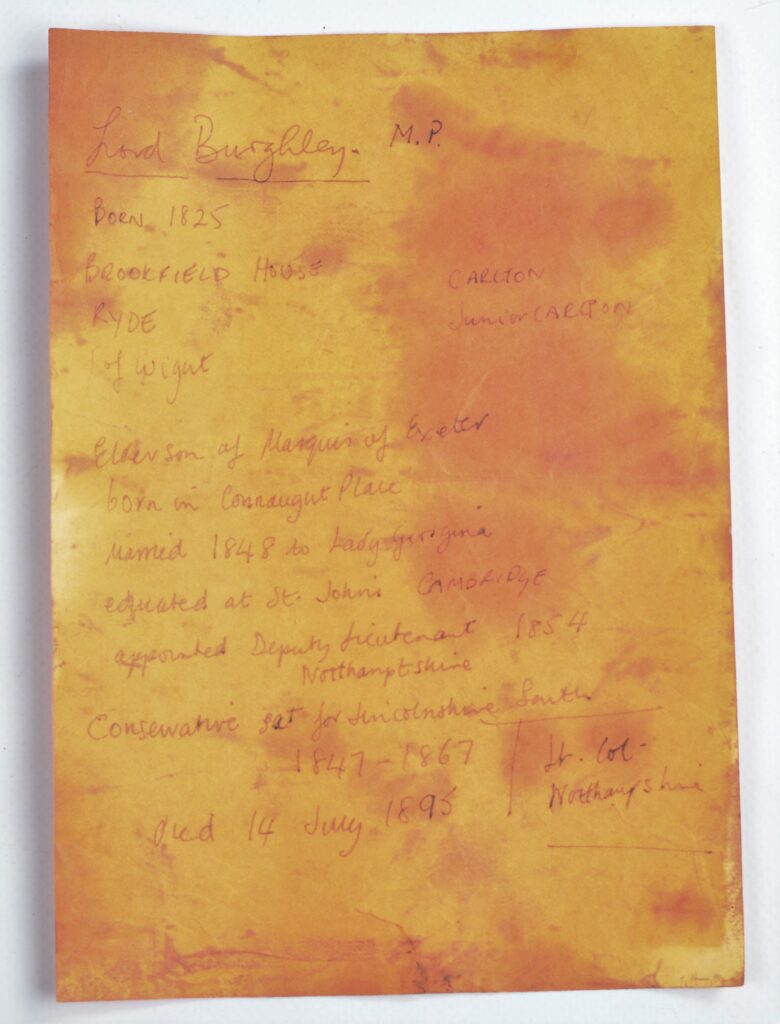 Lord Burghley. M.P.
BORN 1825
BROOKFIELD HOUSE CARLTON
RYDE Junior CARLTON
I of Wight
Elder son of Marquis of Exeter
born in Connaught Place
Married 1848 to Lady Georgina
educated at St. John's CAMBRIDGE
appointed Deputy Lieutenant 1854
Northamptshire
Conservative sat for Lincolnshire South
1847-1867 Lt. Col.
Northampshire
Died 14 July 1895